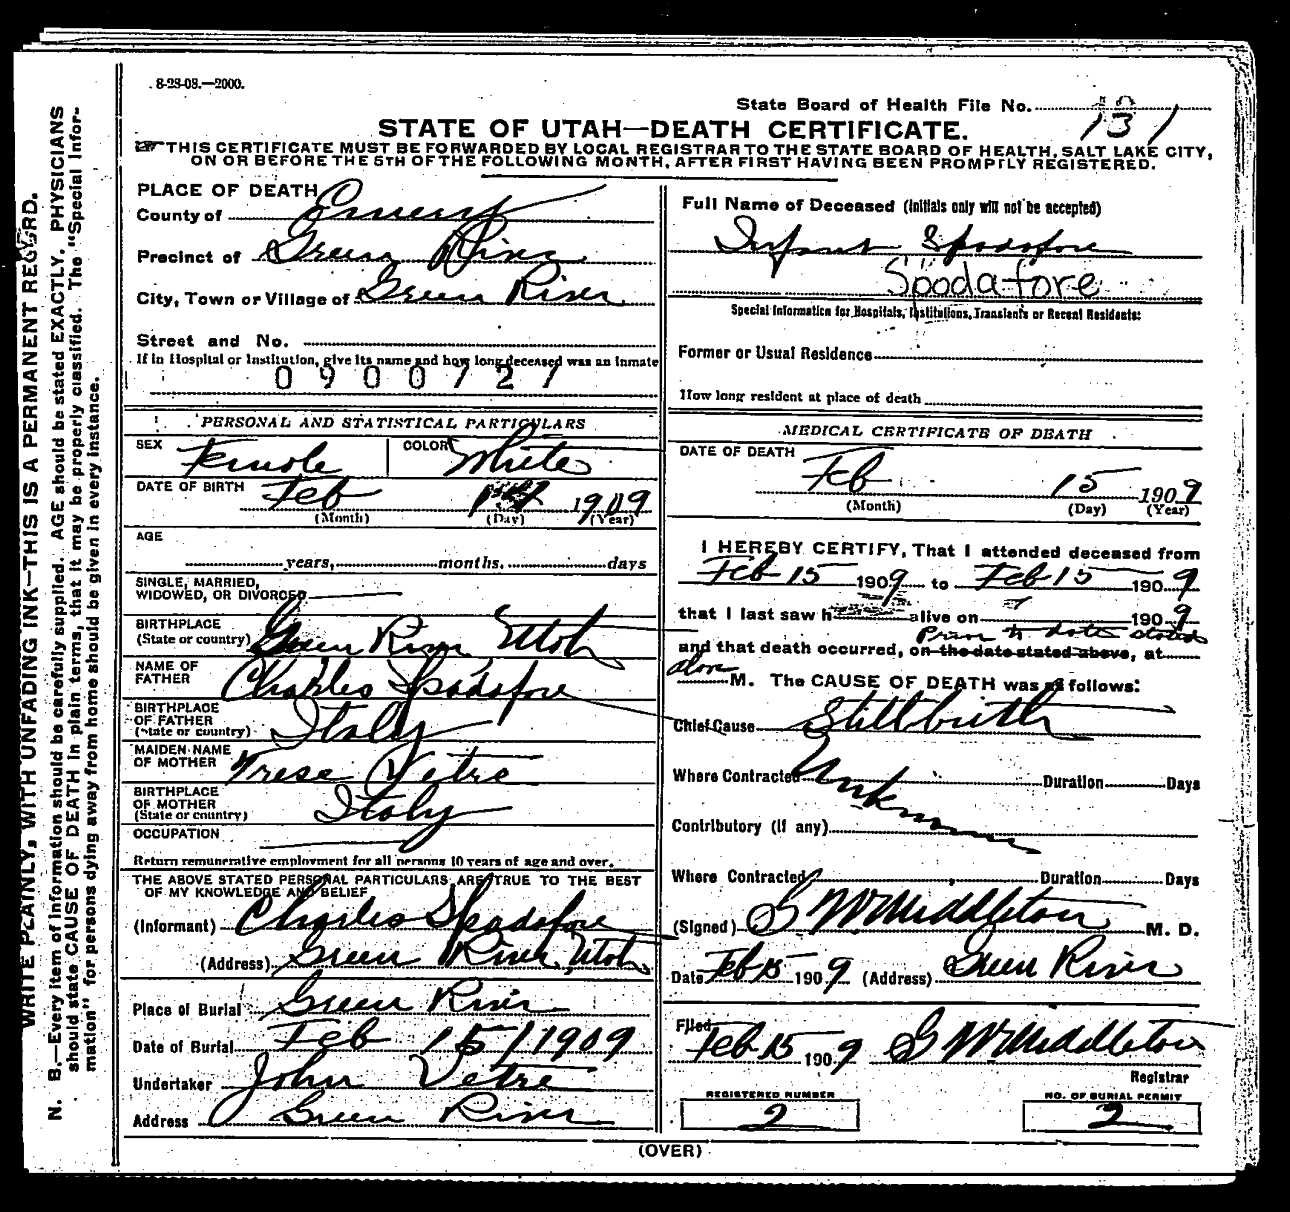 8-28-08.—2000.
State Board of Health File No. 131
STATE OF UTAH—DEATH CERTIFICATE.
THIS CERTIFICATE MUST BE FORWARDED BY LOCAL REGISTRAR TO THE STATE BOARD OF HEALTH, SALT LAKE CITY,
ON OR BEFORE THE 5TH OF THE FOLLOWING MONTH, AFTER FIRST HAVING BEEN PROMPTLY REGISTERED.
WRITE PLAINLY, WITH UNFADING INK—THIS IS A PERMANENT RECORD.
N. B.—Every item of information should be carefully supplied. AGE should be stated EXACTLY. PHYSICIANS
should state CAUSE OF DEATH in plain terms, that it may be properly classified. The "Special Infor-
mation" for persons dying away from home should be given in every instance.
PLACE OF DEATH
County of Emery
Precinct of Green River
City, Town or Village of Green River
Street and No.
If in Hospital or Institution, give its name and how long deceased was an inmate
0900727
PERSONAL AND STATISTICAL PARTICULARS
SEX Female COLOR White
DATE OF BIRTH Feb 1909
(Month) (Day) (Year)
AGE
years, months. days
SINGLE, MARRIED,
WIDOWED, OR DIVORCED
BIRTHPLACE
(State or country) Green River Utah
NAME OF
FATHER Charles Spadafore
BIRTHPLACE
OF FATHER
(State or country) Italy
MAIDEN NAME
OF MOTHER Trese Vetre
BIRTHPLACE
OF MOTHER
(State or country) Italy
OCCUPATION
Return remunerative employment for all persons 10 years of age and over.
THE ABOVE STATED PERSONAL PARTICULARS ARE TRUE TO THE BEST
OF MY KNOWLEDGE AND BELIEF
(Informant) Charles Spadafore
(Address) Green River, Utah
Place of Burial Green River
Date of Burial Feb 15/1909
Undertaker John Vetre
Address Green River
Full Name of Deceased (Initials only will not be accepted)
Infant Spodofore
Spodafore
Special Information for Hospitals, Institutions, Transients or Recent Residents:
Former or Usual Residence
How long resident at place of death
MEDICAL CERTIFICATE OF DEATH
DATE OF DEATH
Feb 15 1909
(Month) (Day) (Year)
I HEREBY CERTIFY, That I attended deceased from
Feb 15 1909 to Feb 15 1909
that I last saw h alive on 1909
Prior to date stated
and that death occurred, on the date stated above, at
above M. The CAUSE OF DEATH was as follows:
Chief Cause Stillbirth
Where Contracted Unknown Duration Days
Contributory (if any)
Where Contracted Duration Days
(Signed) G W Middleton M. D.
Date Feb 15 1909 (Address) Green River
Filed
Feb 15 1909 G W Middleton
Registrar
REGISTERED NUMBER
2
NO. OF BURIAL PERMIT
2
(OVER)